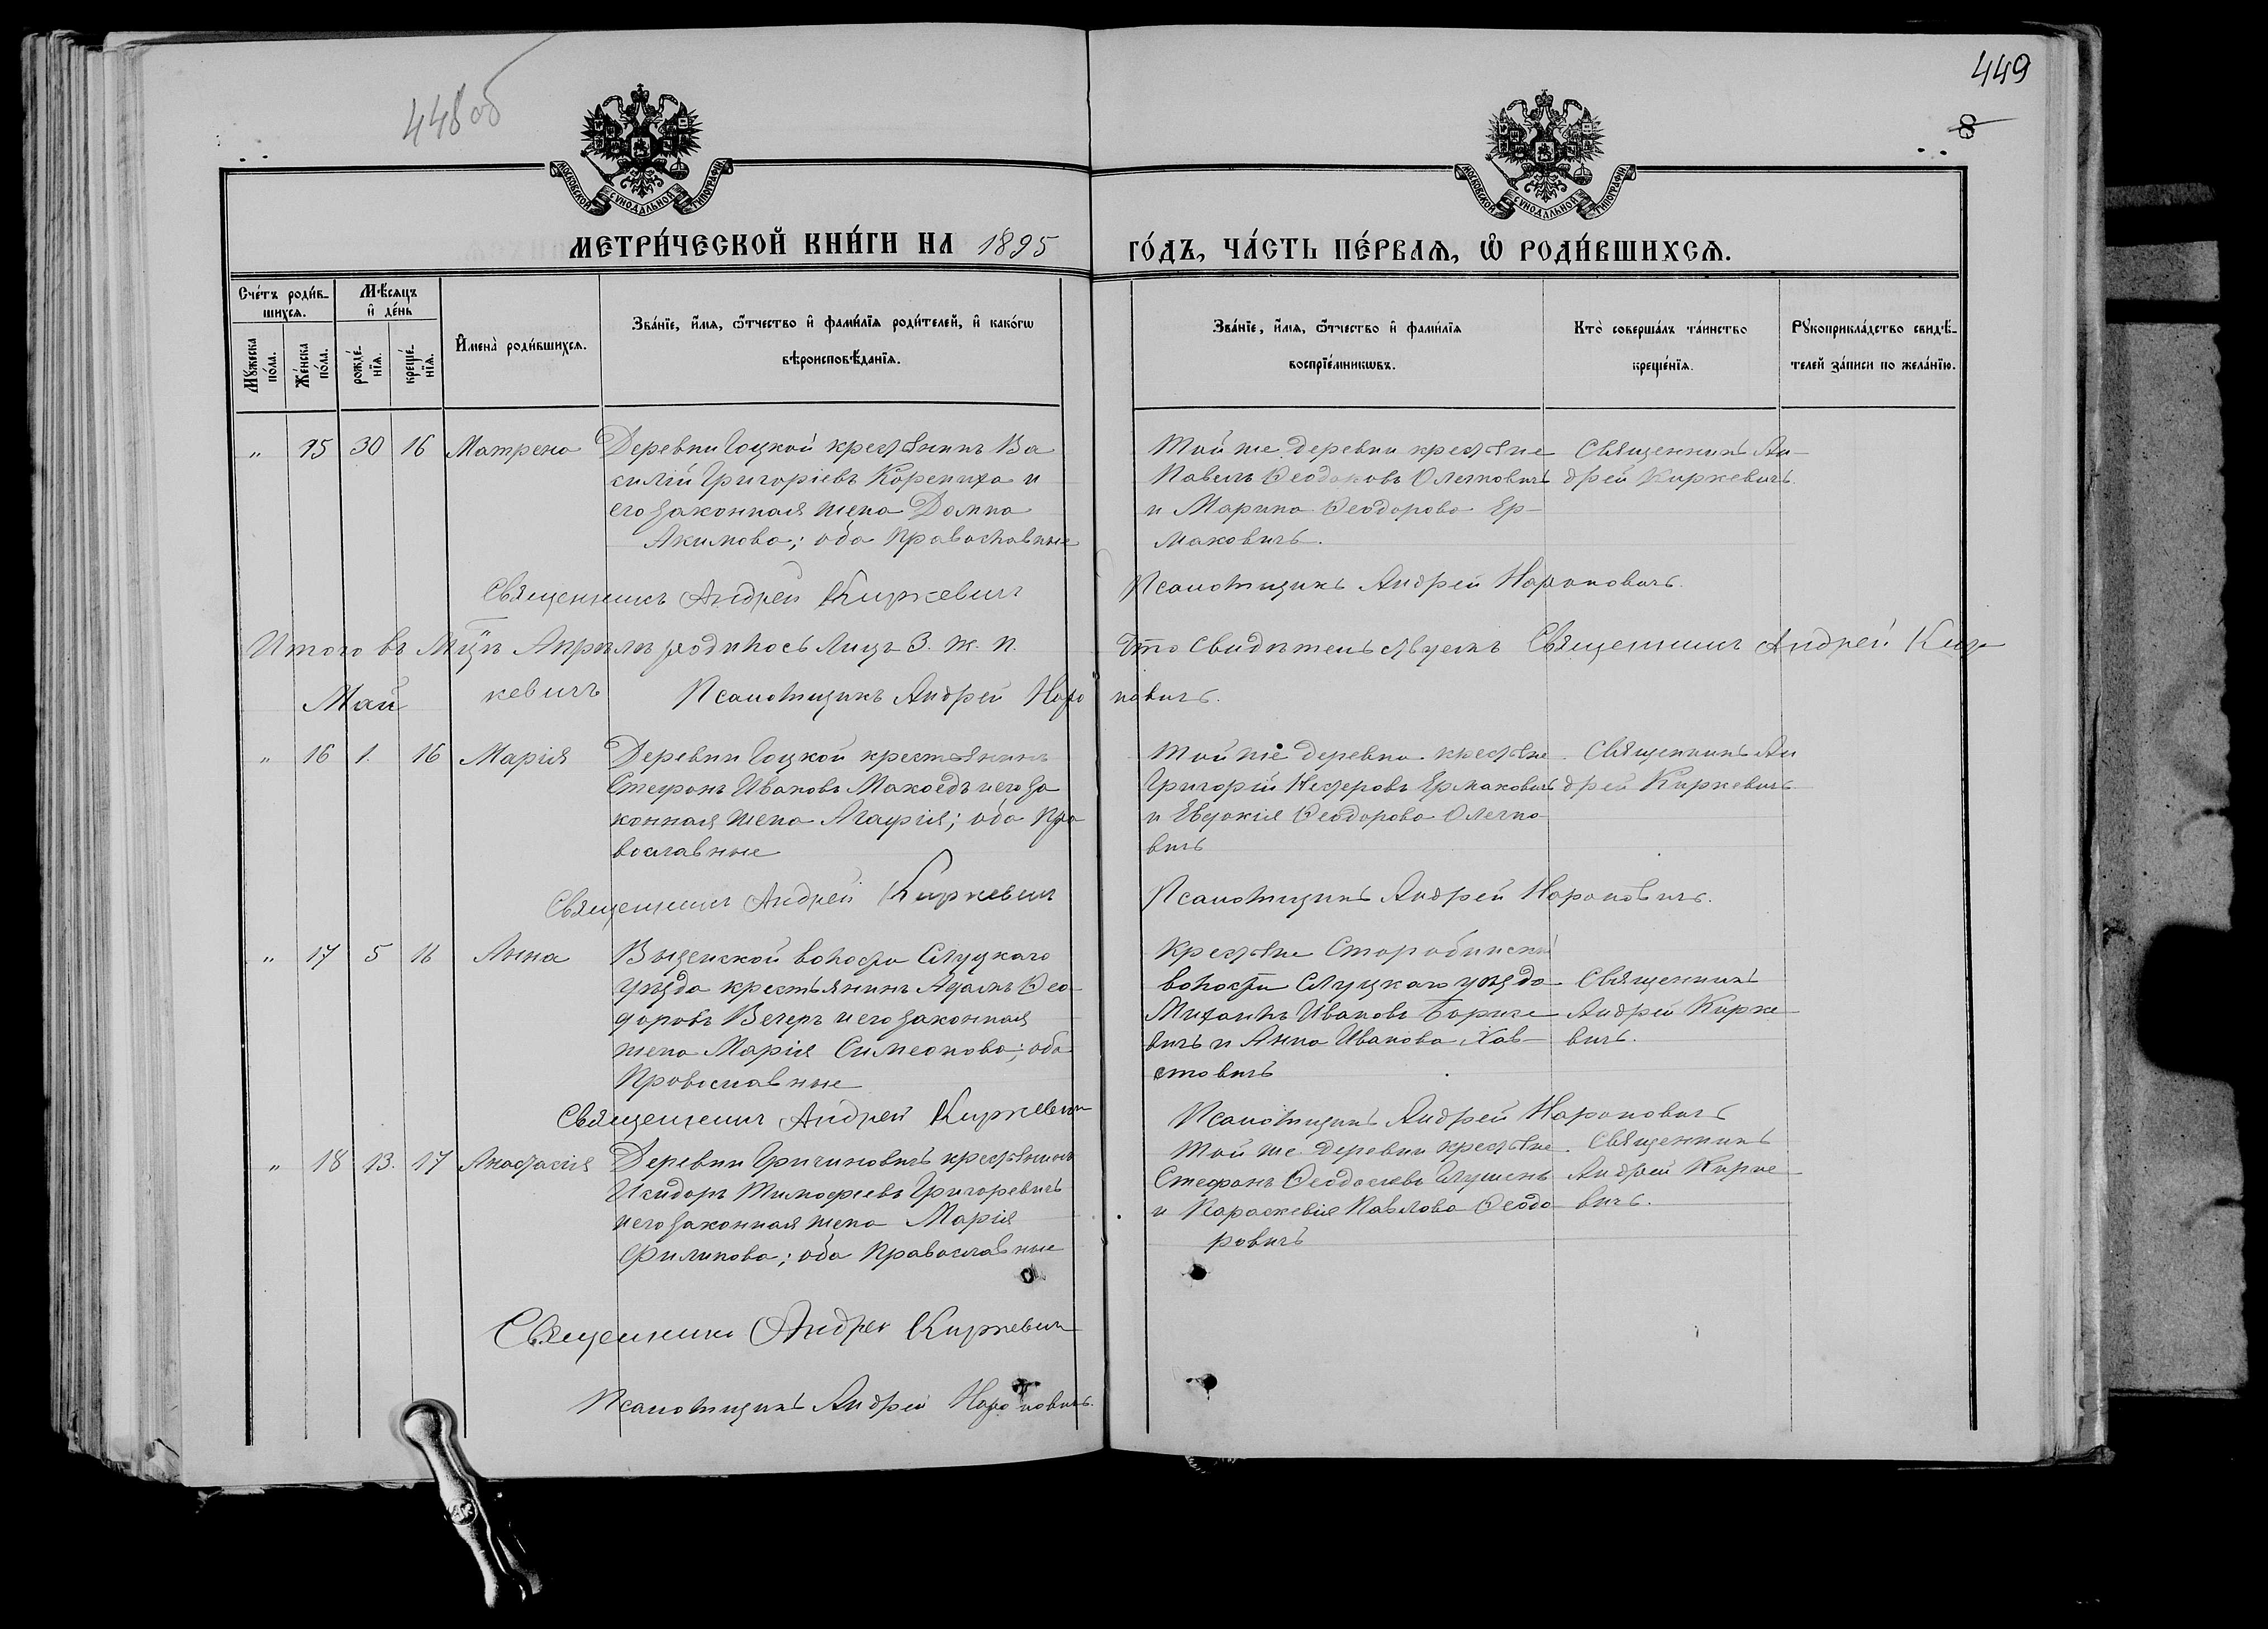 448 об
449
8
МОСКОВСКОЙ СѴНОДАЛЬНОЙ ТИПОГРАФІИ
МОСКОВСКОЙ СѴНОДАЛЬНОЙ ТИПОГРАФІИ
МЕТРИ́ЧЕСКОЙ КНИ́ГИ НА 1895
ГО́ДЪ, ЧА́СТЬ ПЕ́РВАЯ, Ѡ РОДИ́ВШИХСЯ.
Сче́тъ роди́в-
шихся.
Мꙋ́жеска по́ла.
Же́нска по́ла.
Мѣ́сяцъ и де́нь
рожде́-нїя.
креще́-нїя.
Имена̀ роди́вшихся.
Зва́нїе, и́мя, ѻ́тчество и фами́лїя роди́телей, и како́гѡ
вѣроисповѣ́данїя.
Зва́нїе, и́мя, ѻ́тчество и фами́лїя
воспрїе́мникѡвъ.
Кто̀ соверша́лъ та́инство
креще́нїя.
Рꙋкоприкла́дство свидѣ́-
телей за́писи по жела́нїю.
„ 15 30 16 Матрена
Деревни Гоцкой крестьянинъ Ва
силій Григоріевъ Корениха и
его законная жена Домна
Акимова; оба православные
Той же деревни крестьяне
Павелъ Ѳеодоровъ Олегновичъ
и Марина Ѳеодорова Ер-
маковичъ.
Священникъ Ан-
дрей Киркевичъ.
Священникъ Андрей Киркевичъ
Псаломщикъ Андрей Наронович.
Итого въ Мцѣ Апрѣлѣ родилось лицъ 3. ж. п.
Что свидѣтельствуемъ Священникъ Андрей Кир
кевичъ
Псаломщикъ Андрей Наро
новичъ.
Май
„ 16 1. 16 Марія
Деревни Гоцкой крестьянинъ
Стефанъ Ивановъ Макоедъ и его за
конная жена Агафія; оба пра
вославные
Той же деревни крестьяне
Григорій Неферовъ Ермаковичъ
и Евдокія Ѳеодорова Олегно
вичъ
Священникъ Ан
дрей Киркевичъ
Священникъ Андрей Киркевич
Псаломщикъ Андрей Нароновичъ.
„ 17 5 16 Анна
Вызенской волости Слуцкаго
уѣзда крестьянинъ Адамъ Ѳео
доровъ Вечеръ и его законная
жена Марія Симеонова; оба
Православные
Крестьяне Старобинской
волости Слуцкаго уѣзда
Михаилъ Ивановъ Бориче
вичъ и Анна Иванова Хав-
стовичъ
Священникъ
Андрей Кирке
вичъ.
Священникъ Андрей Киркевичъ
Псаломщикъ Андрей Нароновичъ
„ 18 13. 17 Анастасія
Деревни Гричиновичъ крестьянинъ
Исидоръ Тимофеевъ Григоревичъ
и его законная жена Марія
Филипова; оба православные
Той же деревни крестьяне
Стефанъ Ѳеодосіевъ Глушень
и Параскевія Павлова Ѳеодо
ровичъ
Священникъ
Андрей Кирке
вичъ.
Священникъ Андрей Киркевич
Псаломщикъ Андрей Нароновичъ.